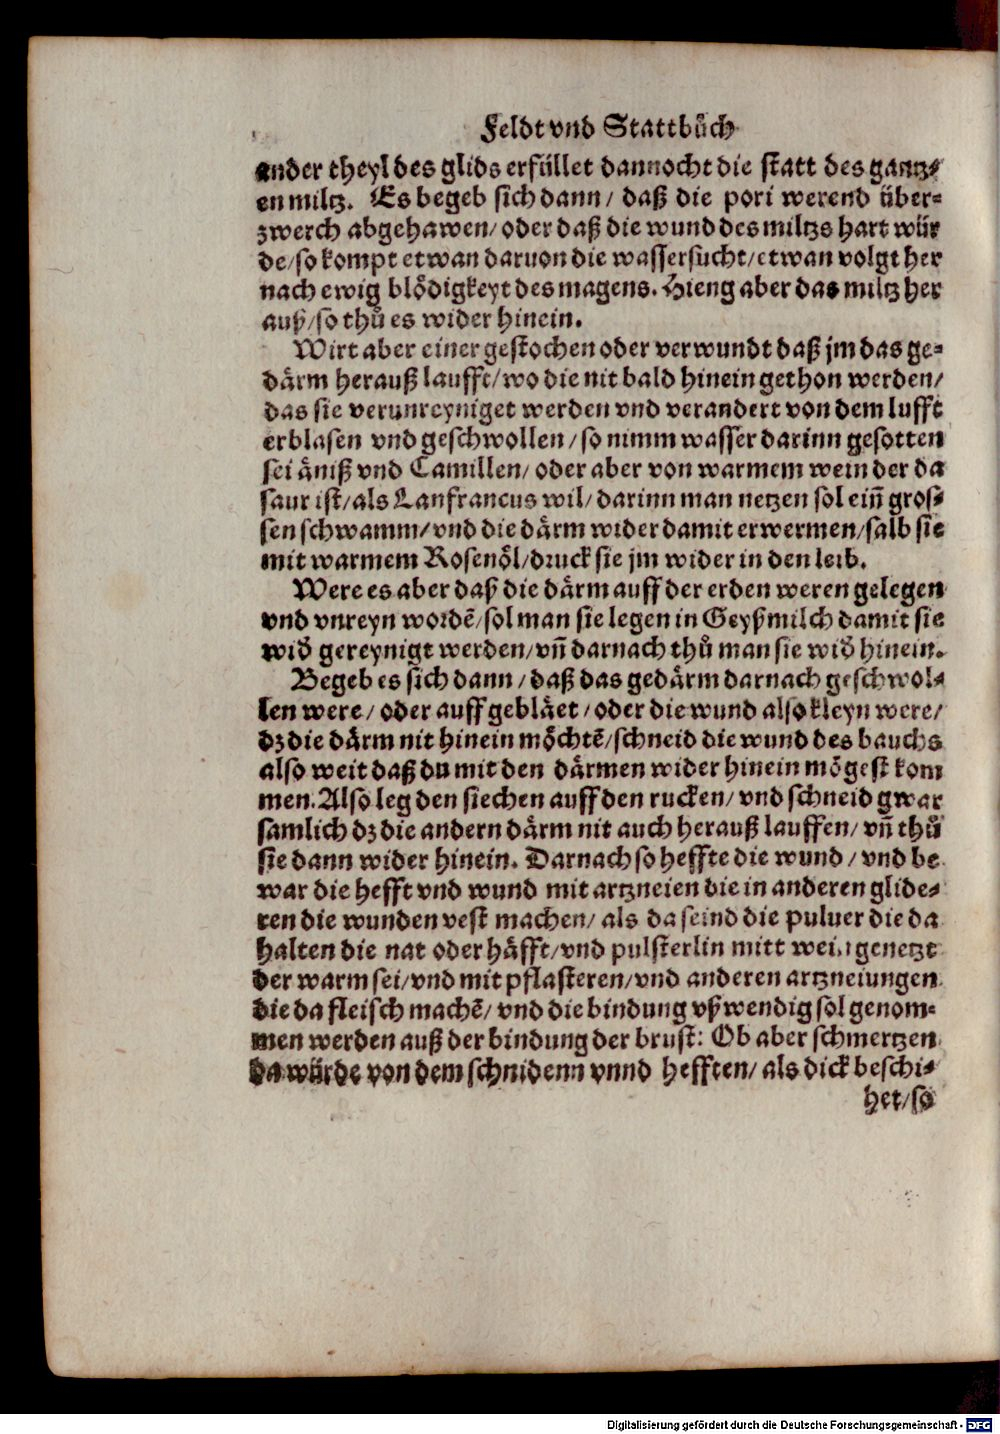 Feldt vnd Stattbůch
ander theyl des glids erfüllet dannocht die statt des gantz⸗
en miltz. Es begeb sich dann/ daß die pori werend über⸗
zwerch abgehawen/ oder daß die wund des miltzs hart wür
de/ so kompt etwan daruon die wassersucht/ etwan volgt her
nach ewig blödigkeyt des magens. Hieng aber das miltz her
auß/ so thů es wider hinein.
Wirt aber einer gestochen oder verwundt daß jm das ge⸗
därm herauß laufft/ wo die nit bald hinein gethon werden/
das sie verunreyniget werden vnd verandert von dem lufft
erblasen vnd geschwollen/ so nimm wasser darinn gesotten
sei äniß vnd Camillen/ oder aber von warmem wein der da
saur ist/ als Lanfrancus wil/ darinn man netzen sol einn̄ gros⸗
sen schwamm/ vnd die därm wider damit erwermen/ salb sie
mit warmem Rosenöl/ druck sie jm wider in den leib.
Were es aber daß die därm auff der erden weren gelegen
vnd vnreyn wordē/ sol man sie legen in Geyßmilch damit sie
wid̄ gereynigt werden/ vn̄ darnach thů man sie wid̄ hinein.
Begeb es sich dann/ daß das gedärm darnach geschwol⸗
len were/ oder auff gebläet/ oder die wund also kleyn were/
dz die därm nit hinein möchtē/ schneid die wund des bauchs
also weit daß du mit den därmen wider hinein mögest kom
men. Also leg den siechen auff den rucken/ vnd schneid gwar
samlich dz die andern därm nit auch herauß lauffen/ vn̄ thů
sie dann wider hinein. Darnach so heffte die wund/ vnd be
war die hefft vnd wund mit artzneien die in anderen glide⸗
ren die wunden vest machen/ als da seind die puluer die da
halten die nat oder häfft/ vnd pulsterlin mitt wein genetzt
der warm sei/ vnd mit pflasteren/ vnd anderen artzneiungen
die da fleisch machē/ vnd die bindung vßwendig sol genom⸗
men werden auß der bindung der brust: Ob aber schmertzen
da würde von dem schnidenn vnnd hefften/ als dick beschi⸗
het/ so
Digitalisierung gefördert durch die Deutsche Forschungsgemeinschaft - DFG